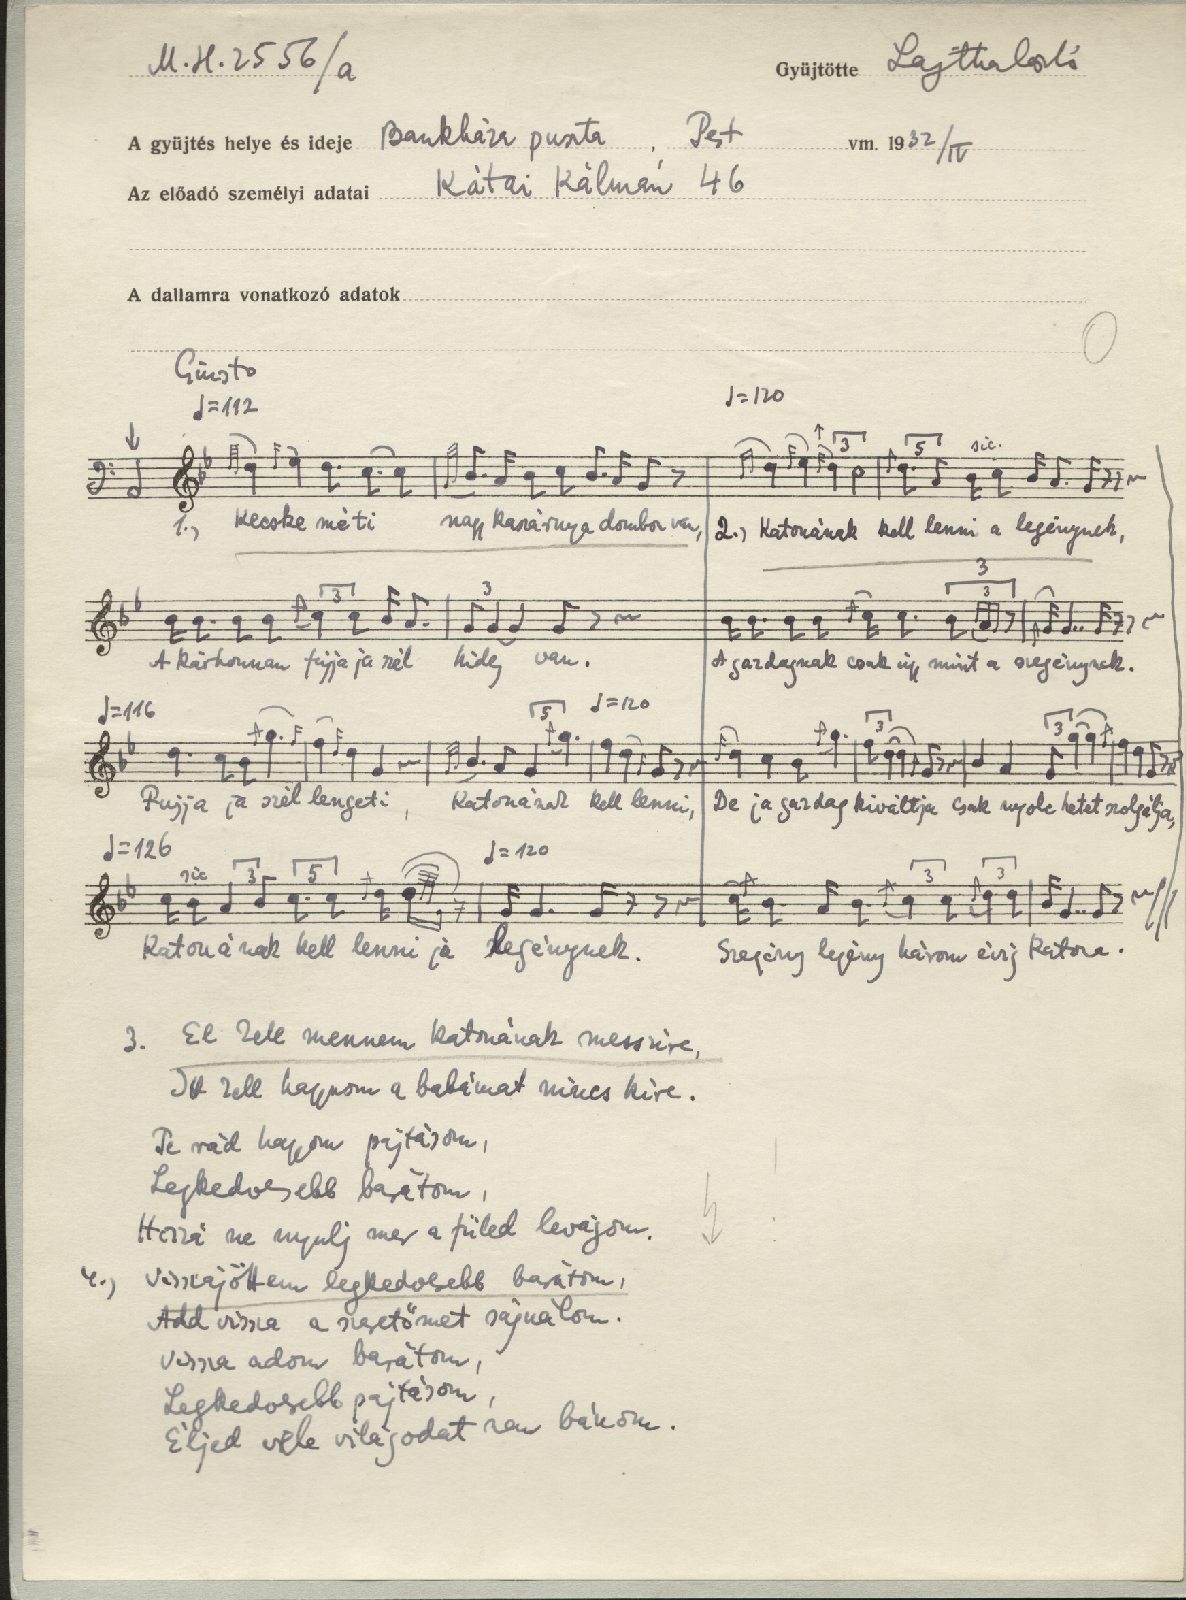 M.H. 2556/a
Gyüjtötte Lajtha László
A gyüjtés helye és ideje Bankháza puszta, Pest vm. 1932/IV
Az előadó személyi adatai Kátai Kálmán 46
A dallamra vonatkozó adatok
Giusto
♩=112 ♩=120
3 5 sic.
1., Kecskeméti nagy kaszárnya dombon van, 2., Katonának kell lenni a legénynek,
3 3 3 3
A kárhonnan fujja ja szél hideg van. A gazdagnak csak úgy mint a szegénynek.
♩=116 5 ♩=120 3 3
Fujja ja szél lengeti, Katonának kell lenni, De ja gazdag kiváltja csak nyolc hetet szolgálja,
♩=126 ♩=120
sic 3 5 3 3
Katonának kell lenni ja legénynek. Szegény legény három évig katona.
3. El kell mennem katonának messzire,
Itt kell hagynom a babámat nincs kire.
Te rád hagyom pajtásom,
Legkedvesebb barátom,
Hozzá ne nyulj mer a füled levágom.
4., Visszajöttem legkedvesebb barátom,
Add vissza a szeretőmet sajnálom.
Vissza adom barátom,
Legkedvesebb pajtásom,
Éljed vele világodat nem bánom.